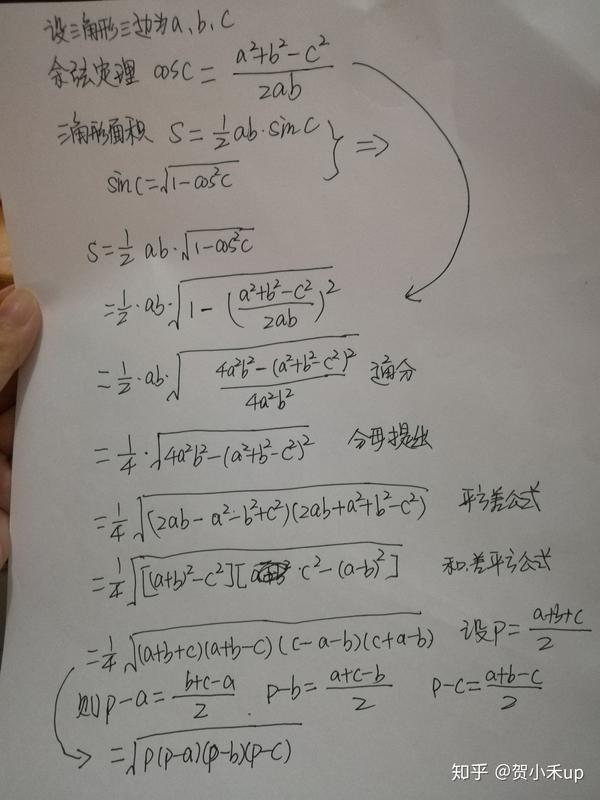 设三角形三边为a、b、c
余弦定理 cosC = (a²+b²-c²)/(2ab)
三角形面积 S = ½ab·sinC } ⇒
sinC = √(1-cos²C)
S = ½ab·√(1-cos²C)
= ½·ab·√(1-((a²+b²-c²)/(2ab))²)
= ½·ab·√((4a²b²-(a²+b²-c²)²)/(4a²b²)) 通分
= ¼·√(4a²b²-(a²+b²-c²)²) 分母提出
= ¼√((2ab-a²-b²+c²)(2ab+a²+b²-c²)) 平方差公式
= ¼√([(a+b)²-c²][c²-(a-b)²]) 和、差平方公式
= ¼√((a+b+c)(a+b-c)(c-a-b)(c+a-b)) 设p = (a+b+c)/2
则p-a = (b+c-a)/2 p-b = (a+c-b)/2 p-c = (a+b-c)/2
= √(p(p-a)(p-b)(p-c))
知乎 @贺小禾up